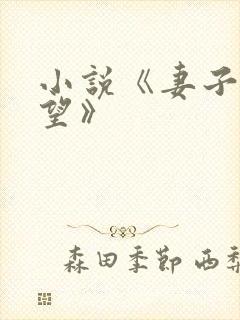 小説《妻子
望》
森田季節 西梨